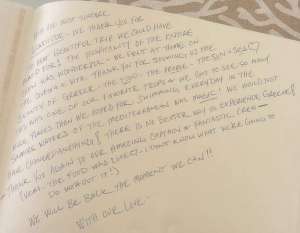 WITH THE MOST SINCERE
GRATITUDE - WE THANK YOU FOR
THE MOST BEAUTIFUL TRIP WE COULD HAVE
HOPED FOR! THE HOSPITALITY OF THE ENTIRE
CREW WAS WONDERFUL - WE FELT AT HOME ON
THANK YOU FOR SHOWING US THE
BEAUTY OF GREECE - THE FOOD - THE PEOPLE - THE SUN + SEA!
THIS WAS ONE OF OUR FAVORITE TRIPS & WE GOT TO SEE SO MANY
MORE PLACES THAN WE HOPED FOR. SWIMMING EVERYDAY IN THE
SUMMER WATERS OF THE MEDITERRANEAN WAS MAGIC! WE WOULD NOT
HAVE CHANGED ANYTHING! THERE IS NO BETTER WAY TO EXPERIENCE GREECE!
THANK YOU AGAIN TO OUR AMAZING CAPTAIN & FANTASTIC CREW -
(YEAH - THE FOOD WAS I DON'T KNOW WHAT WE'RE GOING TO
DO WITHOUT IT!)
WE WILL BE BACK THE MOMENT WE CAN!!
WITH OUR LOVE -